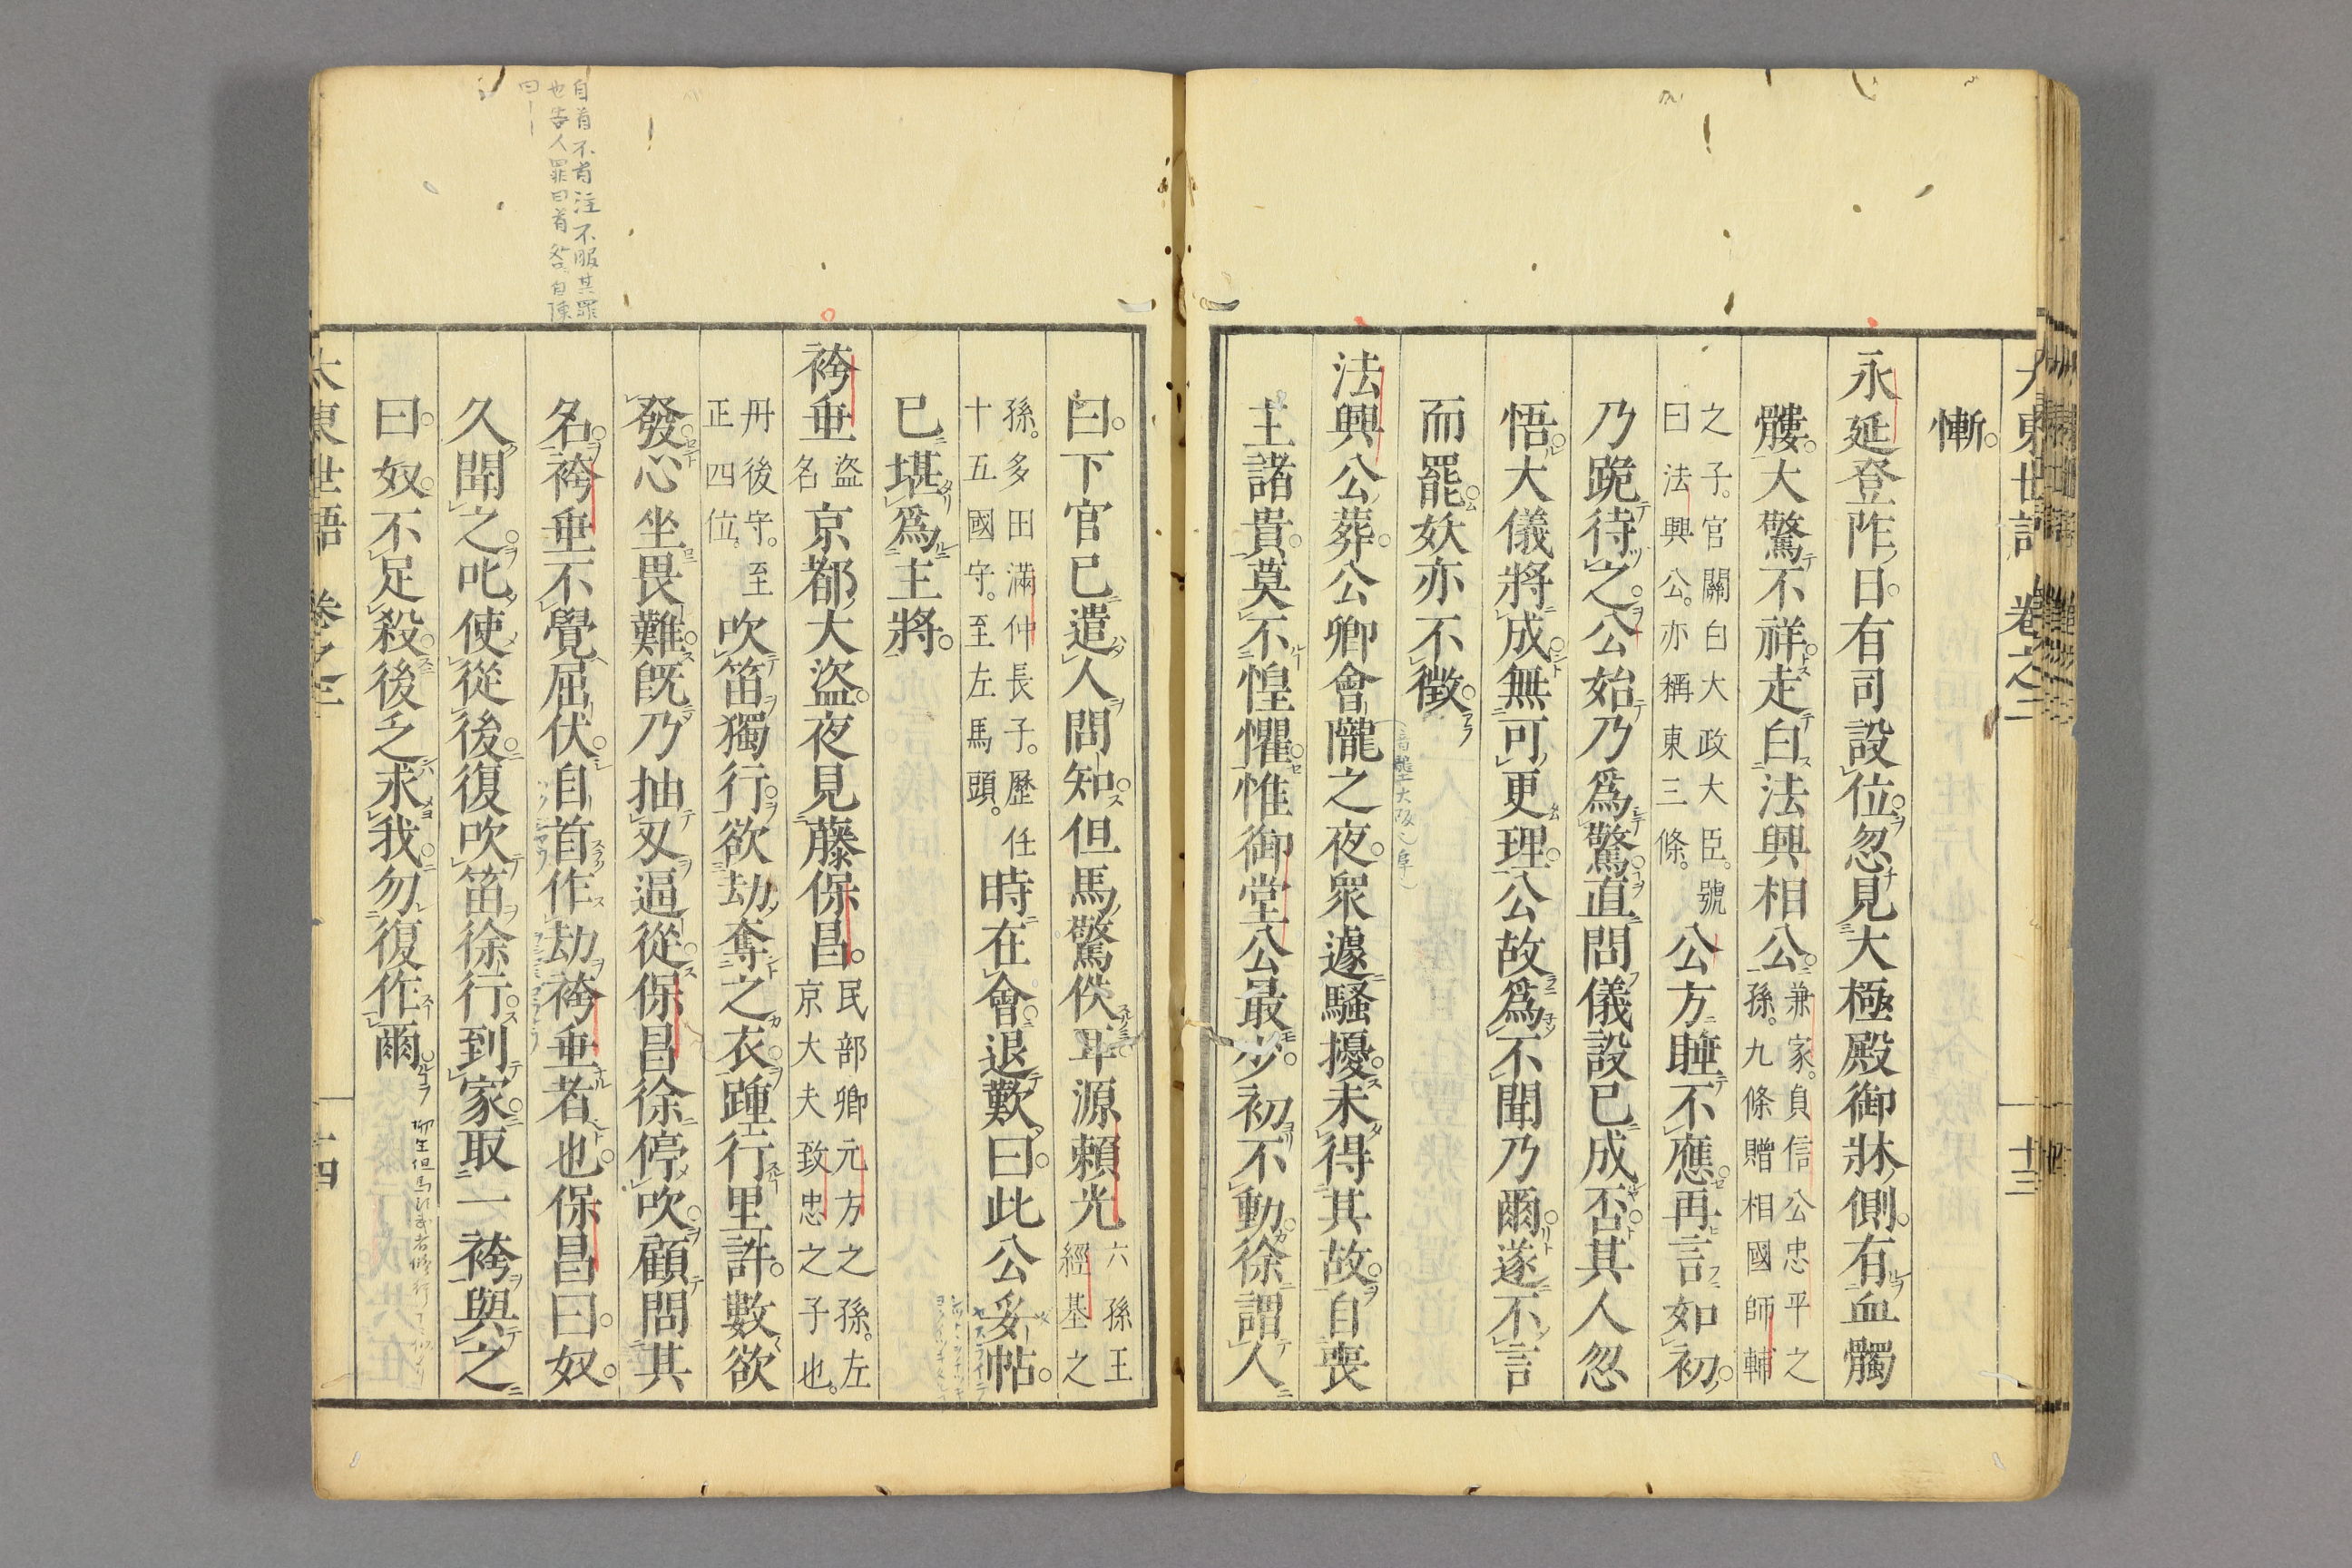 大東世語 卷之二 十三
慚。
永延登阼日。有司設位。忽見大極殿御牀側。有血髑
髏。大驚不祥。走白法興相公。兼家。貞信公忠平之孫。九條贈相國師輔
之子。官關白大政大臣。號曰法興公。亦稱東三條。公方睡不應。再言如初。
乃跪待之。公始乃爲驚。直問儀設已成否。其人忽
悟。大儀將成。無可更理。公故爲不聞乃爾。遂不言
而罷。妖亦不徵。
法興公葬。公卿會隴之夜。衆遽騷擾。未得其故。自喪
主諸貴。莫不惶懼。惟御堂公最少。初不動。徐謂人
曰。下官已遣人問知。但馬驚佚耳。源賴光六孫王經基之
孫。多田滿仲長子。歷任十五國守。至左馬頭。時在會。退歎曰。此公妥帖。
已堪爲主將。
袴垂盜名京都大盜。夜見藤保昌。民部卿元方之孫。左京大夫致忠之子也。
丹後守。至正四位。吹笛獨行。欲劫奪之衣。踵行里許。數欲
發心坐畏難。既乃抽刄逼從。保昌徐停吹。顧問其
名。袴垂不覺屈伏。自首作劫袴垂者也。保昌曰。奴。
久聞之。叱使從後。復吹笛徐行。到家。取一袴與之
曰。奴。不足殺。後乏求我。勿復作爾。
大東世語 卷之二 十四
自首 不首 注 不服其罪
也 告人罪曰首 咎自陳
曰一